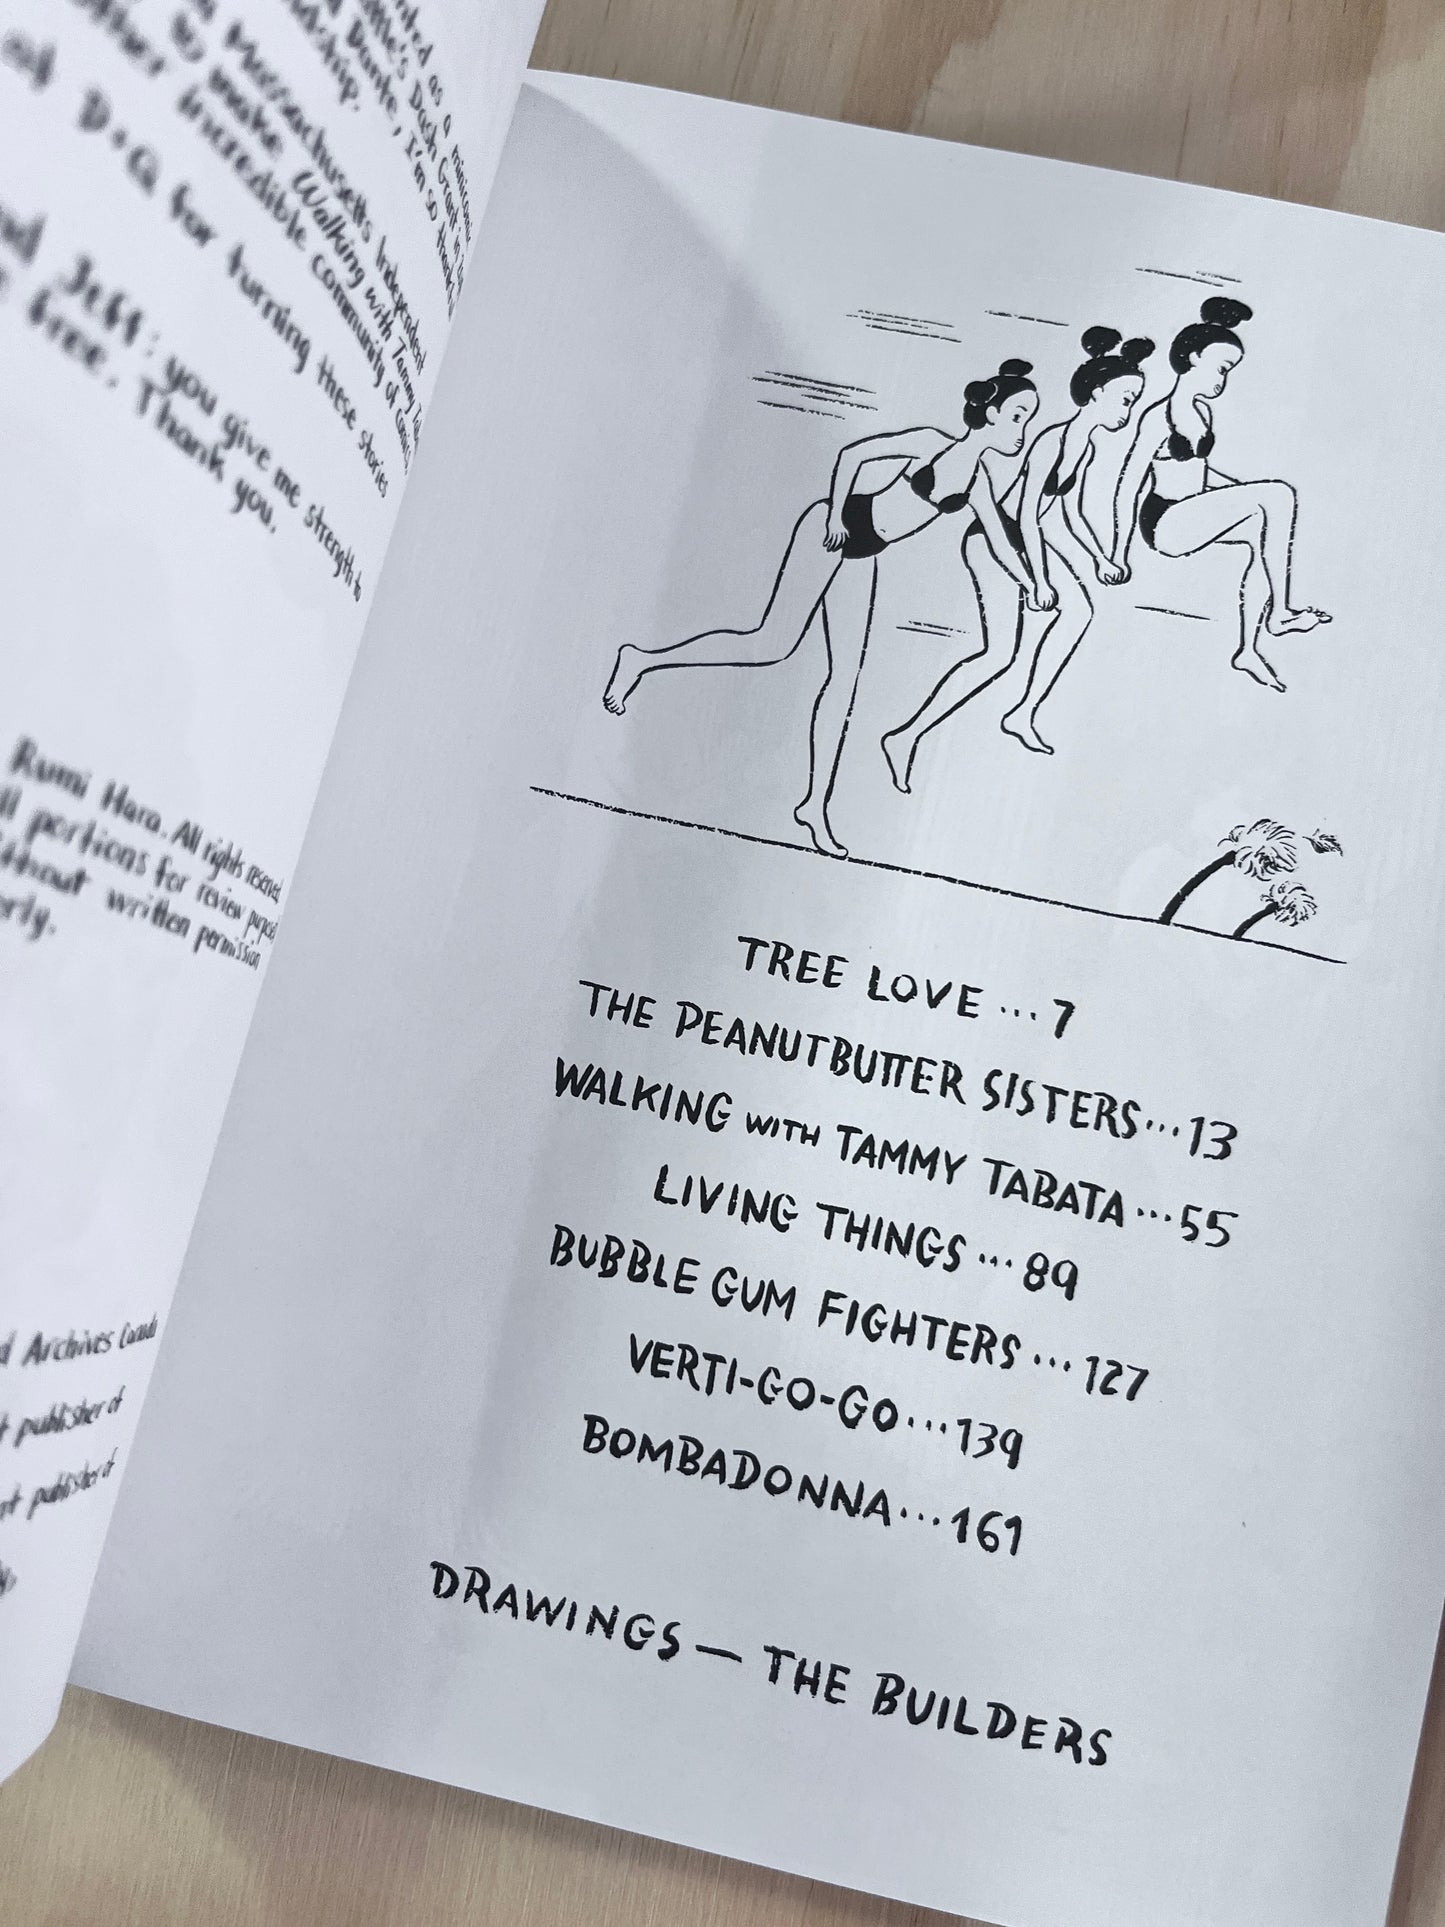 nted as a minicomic
attle's Dash Grant in
d Dante, I'm so thankful
ndship.
Massachusetts Independent
so make Walking with Tammy
other incredible community of Comics
at D+Q for turning these stories
nd Jeff: you give me strength to
free. Thank you.
Rumi Hara. All rights reserved.
ll portions for review purposes
ithout written permission
erly.
d Archives Canada
t publisher of
nt publisher of
TREE LOVE ... 7
THE PEANUTBUTTER SISTERS ... 13
WALKING WITH TAMMY TABATA ... 55
LIVING THINGS ... 89
BUBBLE GUM FIGHTERS ... 127
VERTI-GO-GO ... 139
BOMBADONNA ... 161
DRAWINGS — THE BUILDERS